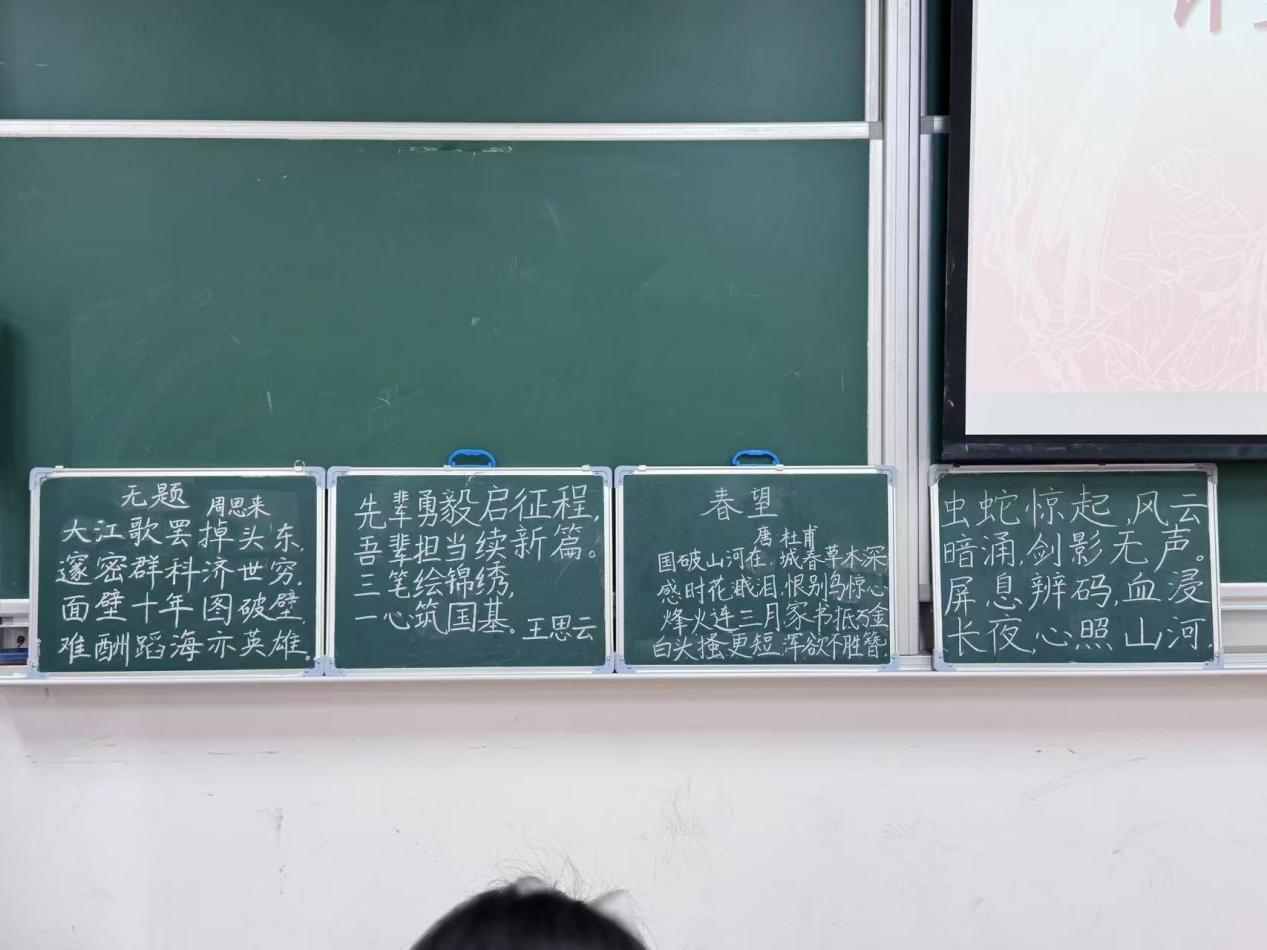 无题 周恩来
大江歌罢掉头东,
邃密群科济世穷,
面壁十年图破壁,
难酬蹈海亦英雄。
先辈勇毅启征程,
吾辈担当续新篇。
三笔绘锦绣,
一心筑国基。王思云
春望
唐 杜甫
国破山河在,城春草木深
感时花溅泪,恨别鸟惊心
烽火连三月家书抵万金
白头搔更短,浑欲不胜簪
虫蛇惊起,风云
暗涌,剑影无声。
屏息辨码,血浸
长夜,心照山河